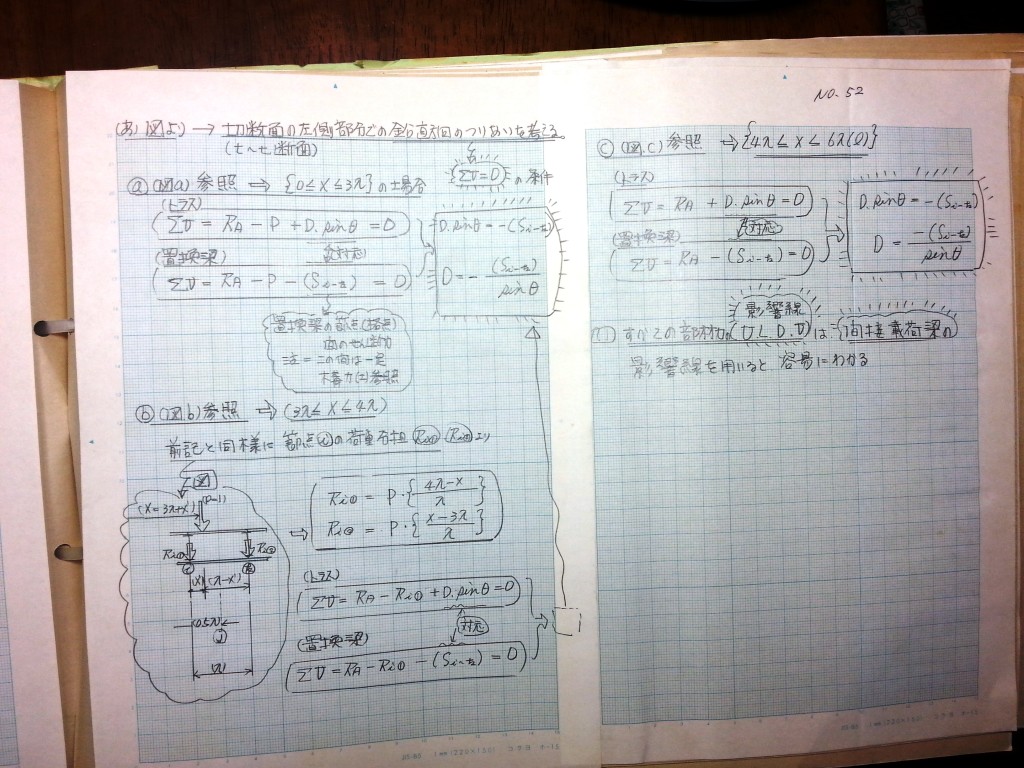 NO. 52
(あ) 図より → 切断面の左側部分での鉛直方向のつりあいを考える
(t〜t断面)
ΣV=0 の条件
ⓐ (図a) 参照 ⇒ {0≦x≦3λ} の場合
(トラス)
ΣV = RA − P + D.sinθ = 0
対応
(置換梁)
ΣV = RA − P − (Si-k) = 0
D.sinθ = −(Si-k)
D = − (Si-k) / sinθ
置換梁の節点(格点)
間のせん断力
注 = この間は一定
参照
ⓑ (図b) 参照 ⇒ (3λ≦x≦4λ)
前記と同様に 節点ⓘの荷重分担 Ri① Ri② より
図
(x=3λ+x')
(P=1)
Ri① Ri②
(x') (λ−x')
(0.5λ)
Ri① = P・{(4λ−x)/λ}
Ri② = P・{(x−3λ)/λ}
(トラス)
ΣV = RA − Ri① + D.sinθ = 0
対応
(置換梁)
ΣV = RA − Ri① − (Si-k) = 0
ⓒ (図c) 参照 → {4λ≦x≦6λ(l)}
(トラス)
ΣV = RA + D.sinθ = 0
対応
(置換梁)
ΣV = RA − (Si-k) = 0
D.sinθ = −(Si-k)
D = −(Si-k) / sinθ
影響線
すべての部材力(U L D.V)は 間接載荷梁の
影響線を用いると 容易にわかる